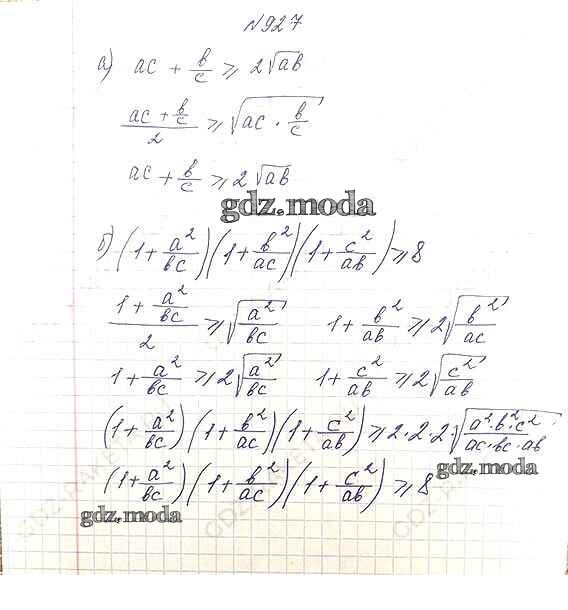 №927
а) ac + b/c ⩾ 2√ab
(ac + b/c)/2 ⩾ √(ac · b/c)
ac + b/c ⩾ 2√ab
gdz.moda
б) (1 + a²/bc)(1 + b²/ac)(1 + c²/ab) ⩾ 8
(1 + a²/bc)/2 ⩾ √(a²/bc) 1 + b²/ab ⩾ 2√(b²/ac)
1 + a²/bc ⩾ 2√(a²/bc) 1 + c²/ab ⩾ 2√(c²/ab)
(1 + a²/bc)(1 + b²/ac)(1 + c²/ab) ⩾ 2·2·2√(a²·b²·c²/ac·bc·ab)
gdz.moda
(1 + a²/bc)(1 + b²/ac)(1 + c²/ab) ⩾ 8
gdz.moda